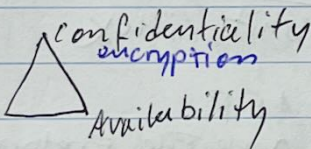 Confidentiality
encryption
Availability